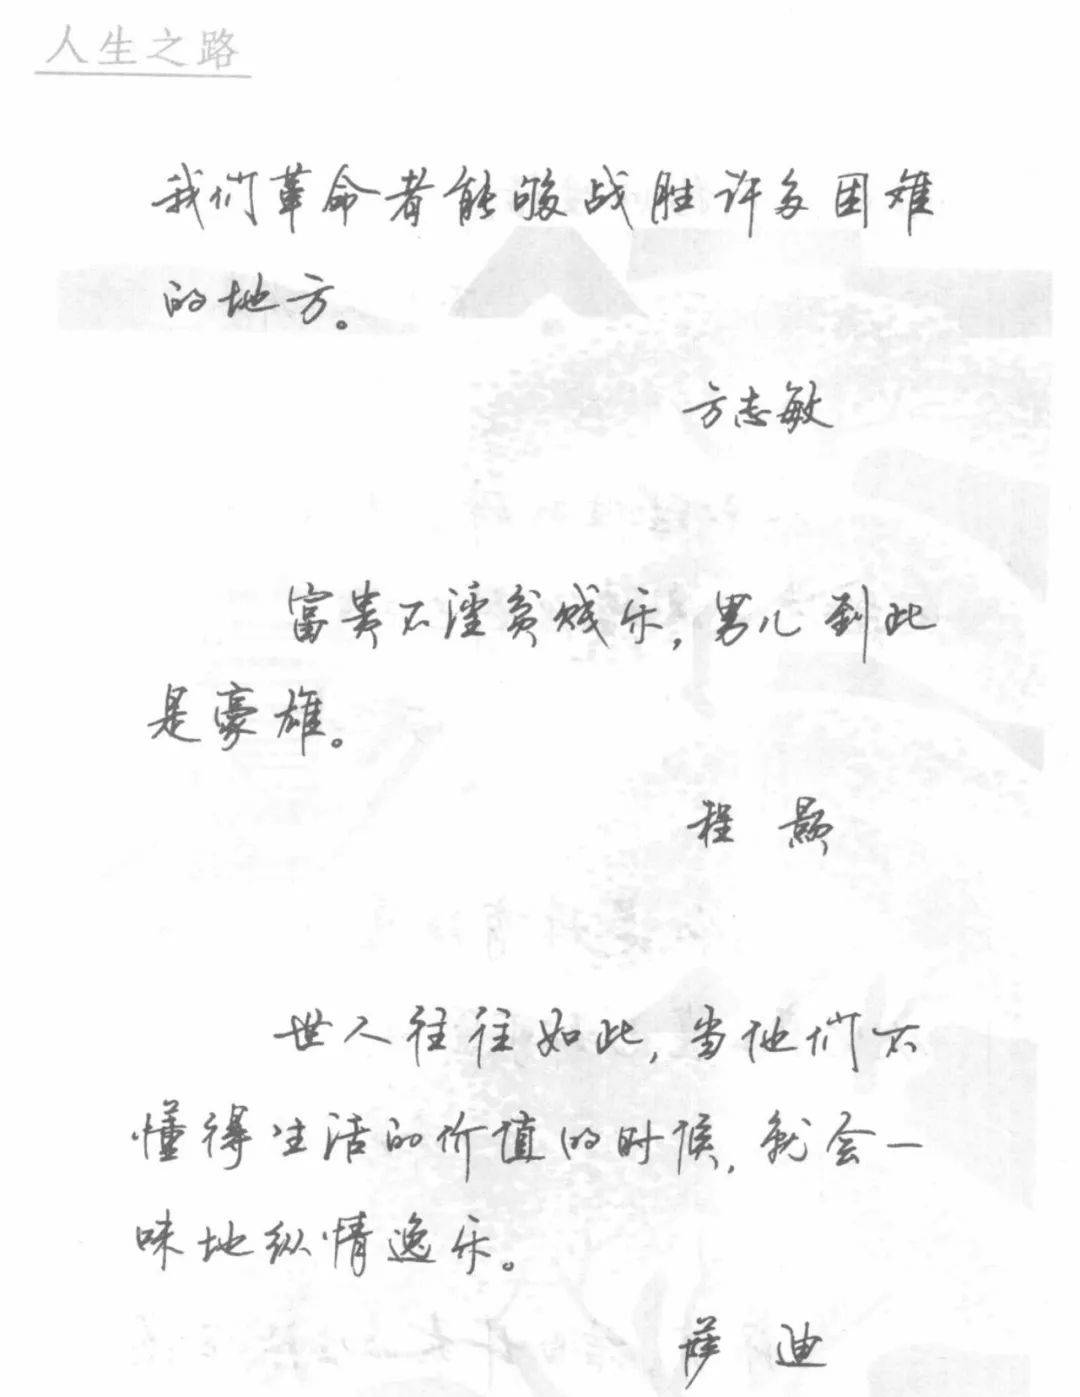 人生之路
我们革命者能够战胜许多困难
的地方。
方志敏
富贵不淫贫贱乐,男儿到此
是豪雄。
程颢
世人往往如此,当他们不
懂得生活的价值的时候,就会一
味地纵情逸乐。
萨迪